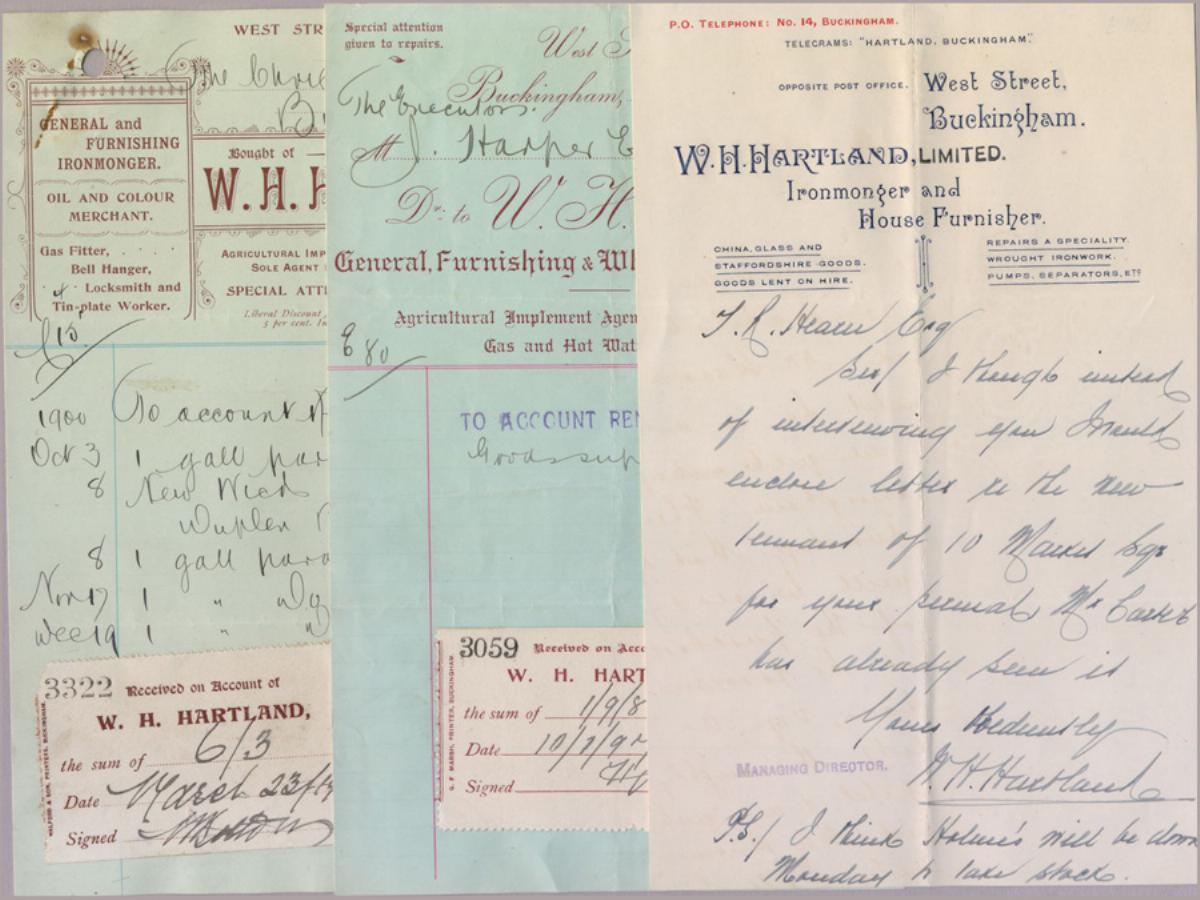 WEST STR
The
GENERAL and
FURNISHING
IRONMONGER.
OIL AND COLOUR
MERCHANT.
Gas Fitter,
Bell Hanger,
Locksmith and
Tin-plate Worker.
Bought of
W. H. H
AGRICULTURAL IMP
SOLE AGENT
SPECIAL ATT
Liberal Discount
5 per cent. In
1900 To account
Oct 3 1 gall par
8 New Wick
Duplex
8 1 gall para
Nov 17 1 "
Dec 19 1 "
3322 Received on Account of
W. H. HARTLAND,
the sum of 6/3
Date March 23/
Signed
Special attention
given to repairs.
West S
Buckingham,
The Executors
M J. Harper
Dr. to W. H.
General, Furnishing & Wh
Agricultural Implement Agen
Gas and Hot Wat
£ 80
TO ACCOUNT REN
Goods sup
3059 Received on Acco
W. H. HART
the sum of 1/9/8
Date 10/
Signed
P.O. TELEPHONE: No. 14, BUCKINGHAM.
TELEGRAMS: "HARTLAND, BUCKINGHAM."
OPPOSITE POST OFFICE. West Street,
Buckingham.
W. H. HARTLAND, LIMITED.
Ironmonger and
House Furnisher.
CHINA, GLASS AND
STAFFORDSHIRE GOODS.
GOODS LENT ON HIRE.
REPAIRS A SPECIALITY.
WROUGHT IRONWORK.
PUMPS, SEPARATORS, ETC
T. R. Hearn Esq
Sir/ I thought instead
of interviewing you I would
enclose letter re the new
tennant of 10 Market Sqr
for your perusal Mr Carter
has already seen it
Yours Obediently
W. H. Hartland
MANAGING DIRECTOR.
P.S./ I think Holmes will be down
Monday to take stock.